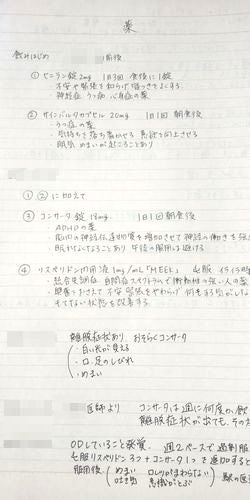 薬
飲みはじめ 1前後
① セニラン錠2mg 1日3回 食後に1錠
不安や緊張を和らげ 寝つきをよくする
神経症 うつ病 心身症の薬
② サインバルタカプセル 20mg 1日1回 朝食後
・うつ症の薬
・気持ちを落ち着かせる 意欲を向上させる
・眠気 めまいが起こることあり
① ② に加えて
③ コンサータ錠 18mg 1日1回朝食後
・ADHDの薬
・脳内の神経伝達物質を増加させて神経の働きを強
・眠れなくなることあり 午後の服用は避ける
④ リスペリドン内用液 1mg/mL「MEEK」 屯服 イライラ時
・統合失調症 自閉症スペクトラムで衝動性の強い人の薬
・興奮をおさえて 不安 緊張をやわらげ 何もする気がしな
離脱症状あり おそらくコンサータ
・白い気が見える
・口、足のしびれ
・めまい
医師より コンサータは週に何度か、飲
離脱症状が出ても、その
ODしていること発覚. 週2ペースで過剰服
屯服リスペリドン3つ+コンサータ1つを追加すると
服用後 めまい ロレツがまわらない
吐き気 意識がとぶ